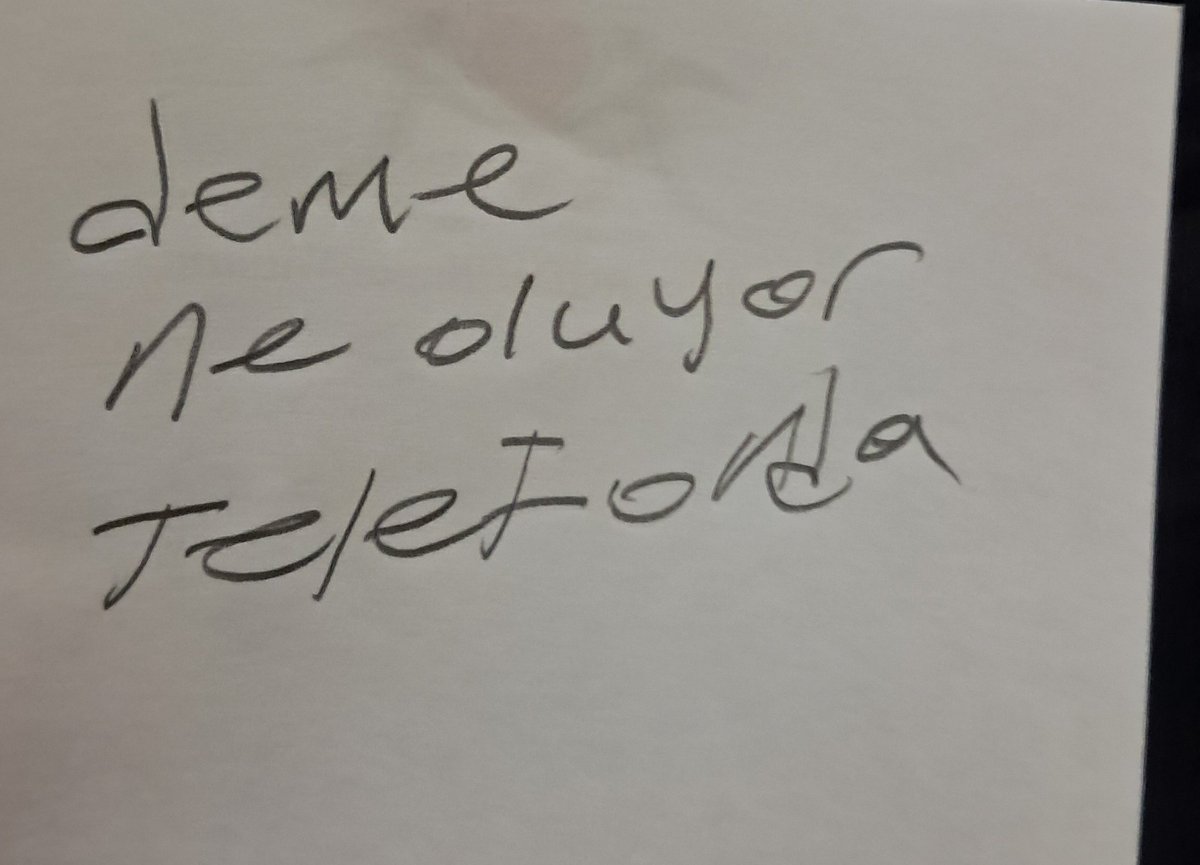 deme
ne oluyor
Telefonda